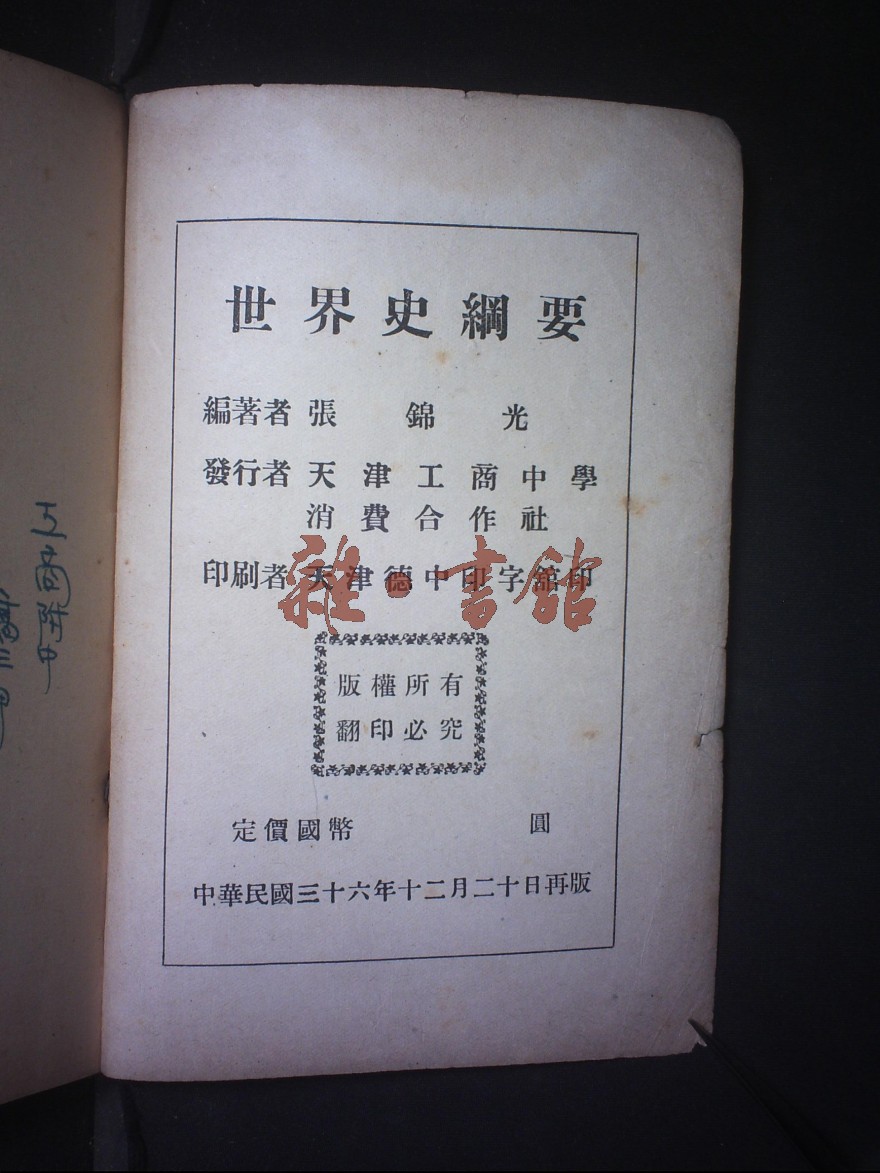 世界史綱要
編著者 張錦光
發行者 天津工商中學
消費合作社
印刷者 天津德中印字館印
雜·書館
版權所有
翻印必究
定價國幣 圓
中華民國三十六年十二月二十日再版
工商附中